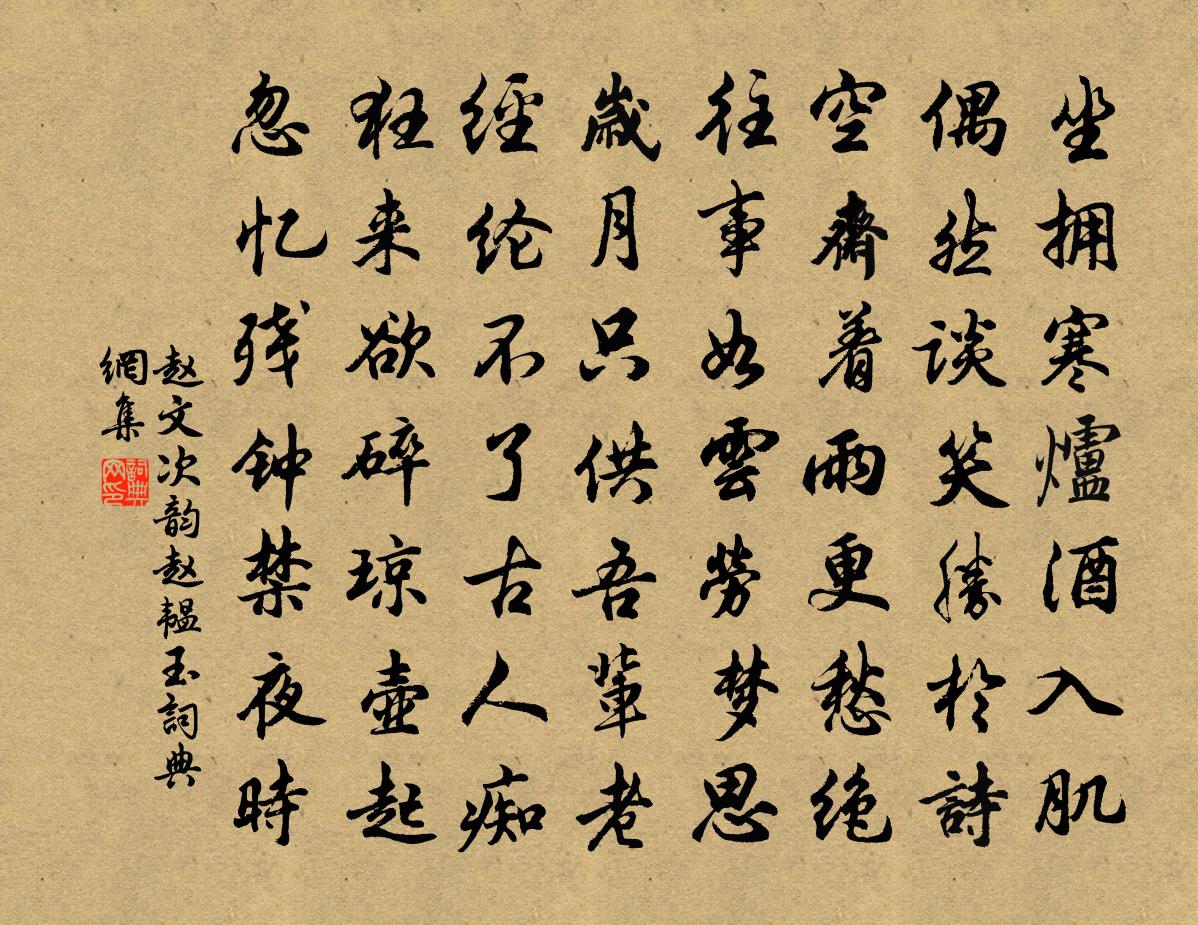 坐拥寒爐酒入肌
偶然談笑勝於詩
空齋着雨更愁绝
往事如雲勞梦思
歲月只供吾輩老
经纶不了古人痴
狂来欲碎琼壺起
忽忆残钟禁夜時
赵文次韵赵韫玉詞典
網集
詞典网印